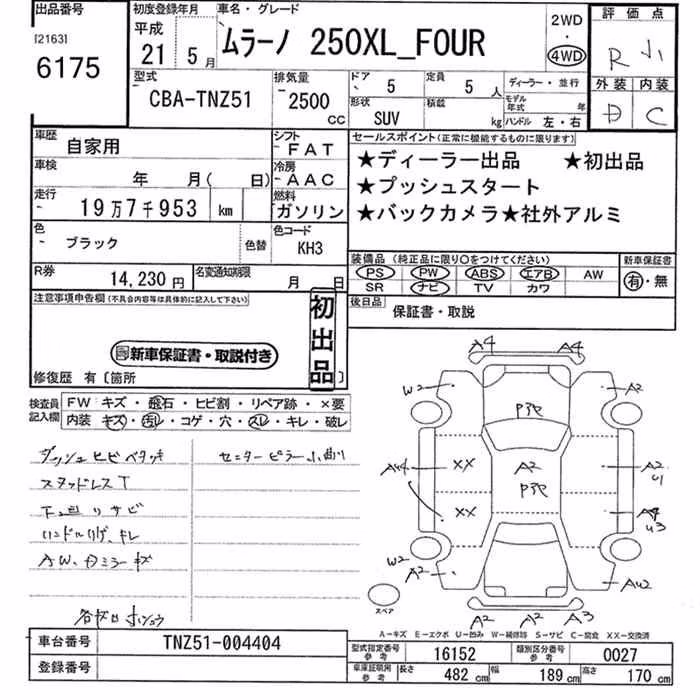 出品番号 初度登録年月 車名・グレード 2WD 評価点
[2163] 平成
6175 21年 5月 ムラーノ 250XL_FOUR 4WD R 小
型式 排気量 ドア 5 定員 5人 ディーラー・並行 外装 内装
CBA-TNZ51 2500cc 形状 SUV 積載 kg モデル年式 年 ハンドル 左・右 D C
車歴 自家用 シフト FAT セールスポイント(正常に機能するものに限ります)
車検 年 月( 日) 冷房 AAC ★ディーラー出品 ★初出品
走行 19万7千953 km 燃料 ガソリン ★プッシュスタート
★バックカメラ★社外アルミ
色 ブラック 色替 色コード KH3
装備品(純正品に限り○をつけてください) 新車保証書
PS PW ABS エアB AW 有・無
SR ナビ TV カワ
R券 14,230円 名変通知期限 月 日
後日品 保証書・取説
注意事項申告欄(不具合内容等は具体的に記入して下さい)
初出品
新車保証書・取説付き
修復歴 有〔箇所 〕
検査員記入欄 FW キズ・飛石・ヒビ割・リペア跡・×要
内装 キズ・汚レ・コゲ・穴・スレ・キレ・破レ
ダッシュヒビベタつき センターピラー小曲り
スタッドレスT
下廻りサビ
ハンドル キレ
AW、ミラーキズ
A4 A4
W2 A2
P
A4 XX A2 A2
U1
P
XX A4
U3
W2
A2 AU2
A2 A2 A3
スペア
A-キズ E-エクボ U-凹み W-補修跡 S-サビ C-腐食 XX-交換済
車台番号 TNZ51-004404 型式指定番号 参考 16152 類別区分番号 参考 0027
登録番号 車庫証明用 参考 長さ 482cm 幅 189cm 高さ 170cm